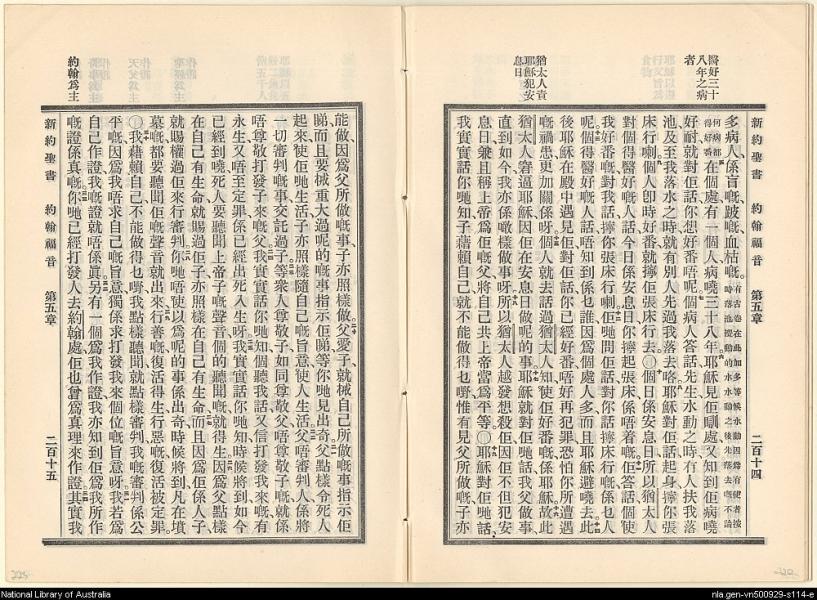 醫好三十
八年之病
者
猶太人責
耶穌犯安
息日
新約聖書 約翰福音 第五章 二百十四
多病人係盲嘅、跛嘅、血枯嘅。
在個處有一個人病嘵三十八年、耶穌見佢瞓處、又知到佢病嘵
好耐、就對佢話、你想好番唔呢、個病人答話、先生、水動之時、有人扶我落
池、及至我落水之時、就有別人先過我落去咯、耶穌對佢話、起身擰你張
床行喇、個人即時好番、就擰佢張床行去。〇個日係安息日、所以猶太人
對個得醫好嘅人話、今日係安息日、你擰起張床係唔着嘅、佢答話、個使
我好番嘅、對我話、擰你張床行喇、佢哋問佢話、對你話擰床行嘅係乜人
呢、個得醫好嘅人話、唔知到係乜誰、因爲個處人多、而且耶穌避嘵去、此
後耶穌在殿中遇見佢、對佢話、你已經好番、唔好再犯罪、恐怕你所遭遇
嘅禍患、更加關係呀、個人就去話過猶太人知、使佢好番嘅係耶穌、故此
猶太人窘逼耶穌、因佢在安息日做呢的事、耶穌就對佢哋話、我父做事、
直到如今、我亦係噉樣做事呀、所以猶太人越發想殺佢、因佢不但犯安
息日、兼且稱上帝爲佢嘅父、將自己共上帝當爲平等。〇耶穌對佢哋話、
我實實話你哋知、子藉賴自己、就不能做得乜嘢、惟有見父所做嘅、子亦
約翰爲主
能做、因爲父所做嘅事、子亦照樣做、父愛子、就械自己所做嘅事指示佢
睇、而且要械重大過呢的嘅事指示佢睇、等你哋見出奇、父點樣令死人
起來、使佢哋生活、子亦照樣隨自己嘅旨意使人生活、父唔審判人、係將
一切審判嘅事交託過子、等衆人尊敬子、如同尊敬父、唔尊敬子嘅、就係
唔尊敬打發子來嘅父、我實實話你哋知、個聽我話、又信打發我來嘅、有
永生、又唔至定罪、係已經出死入生呀、我實實話你哋知、時候將到、如今
已經到嘵、死人要聽聞上帝子嘅聲音、個的聽聞嘅就得生、因爲父點樣
在自己有生命、就賜過佢子亦照樣在自己有生命、而且因爲佢係人子、
就賜權過佢來行審判、你哋唔使以爲呢的事係出奇、時候將到、凡在墳
墓嘅、都要聽聞佢嘅聲音、就出來、行善嘅復活得生、行惡嘅復活被定罪。
〇我藉賴自己、不能做得乜嘢、我點樣聽聞、就點樣審判、我嘅審判係公
平嘅、因爲我唔求自己嘅旨意、獨係求打發我來個位嘅旨意呀、我若爲
自己作證、我嘅證就唔係眞、另有一個爲我作證、我亦知到佢爲我所作
嘅證係真嘅、你哋已經打發人去約翰處、佢也曾爲真理來作證、其實我
新約聖書 約翰福音 第五章 二百十五
National Library of Australia
nla.gen-vn500929-s114-e